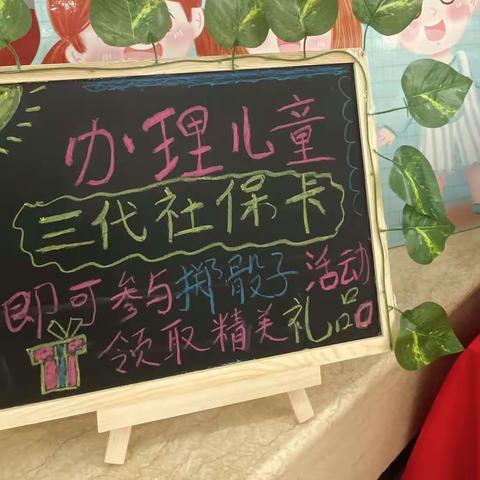 办理儿童
三代社保卡
即可参与掷骰子活动
领取精美礼品